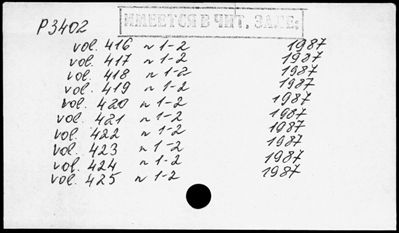 P3402
ИМЕЕТСЯ В ЧИТ. ЗАЛЕ.
vol. 416 n 1-2 1987
vol. 417 n 1-2 1987
vol. 418 n 1-2 1987
vol. 419 n 1-2 1987
vol. 420 n 1-2 1987
vol. 421 n 1-2 1987
vol. 422 n 1-2 1987
vol. 423 n 1-2 1987
vol. 424 n 1-2 1987
vol. 425 n 1-2 1987